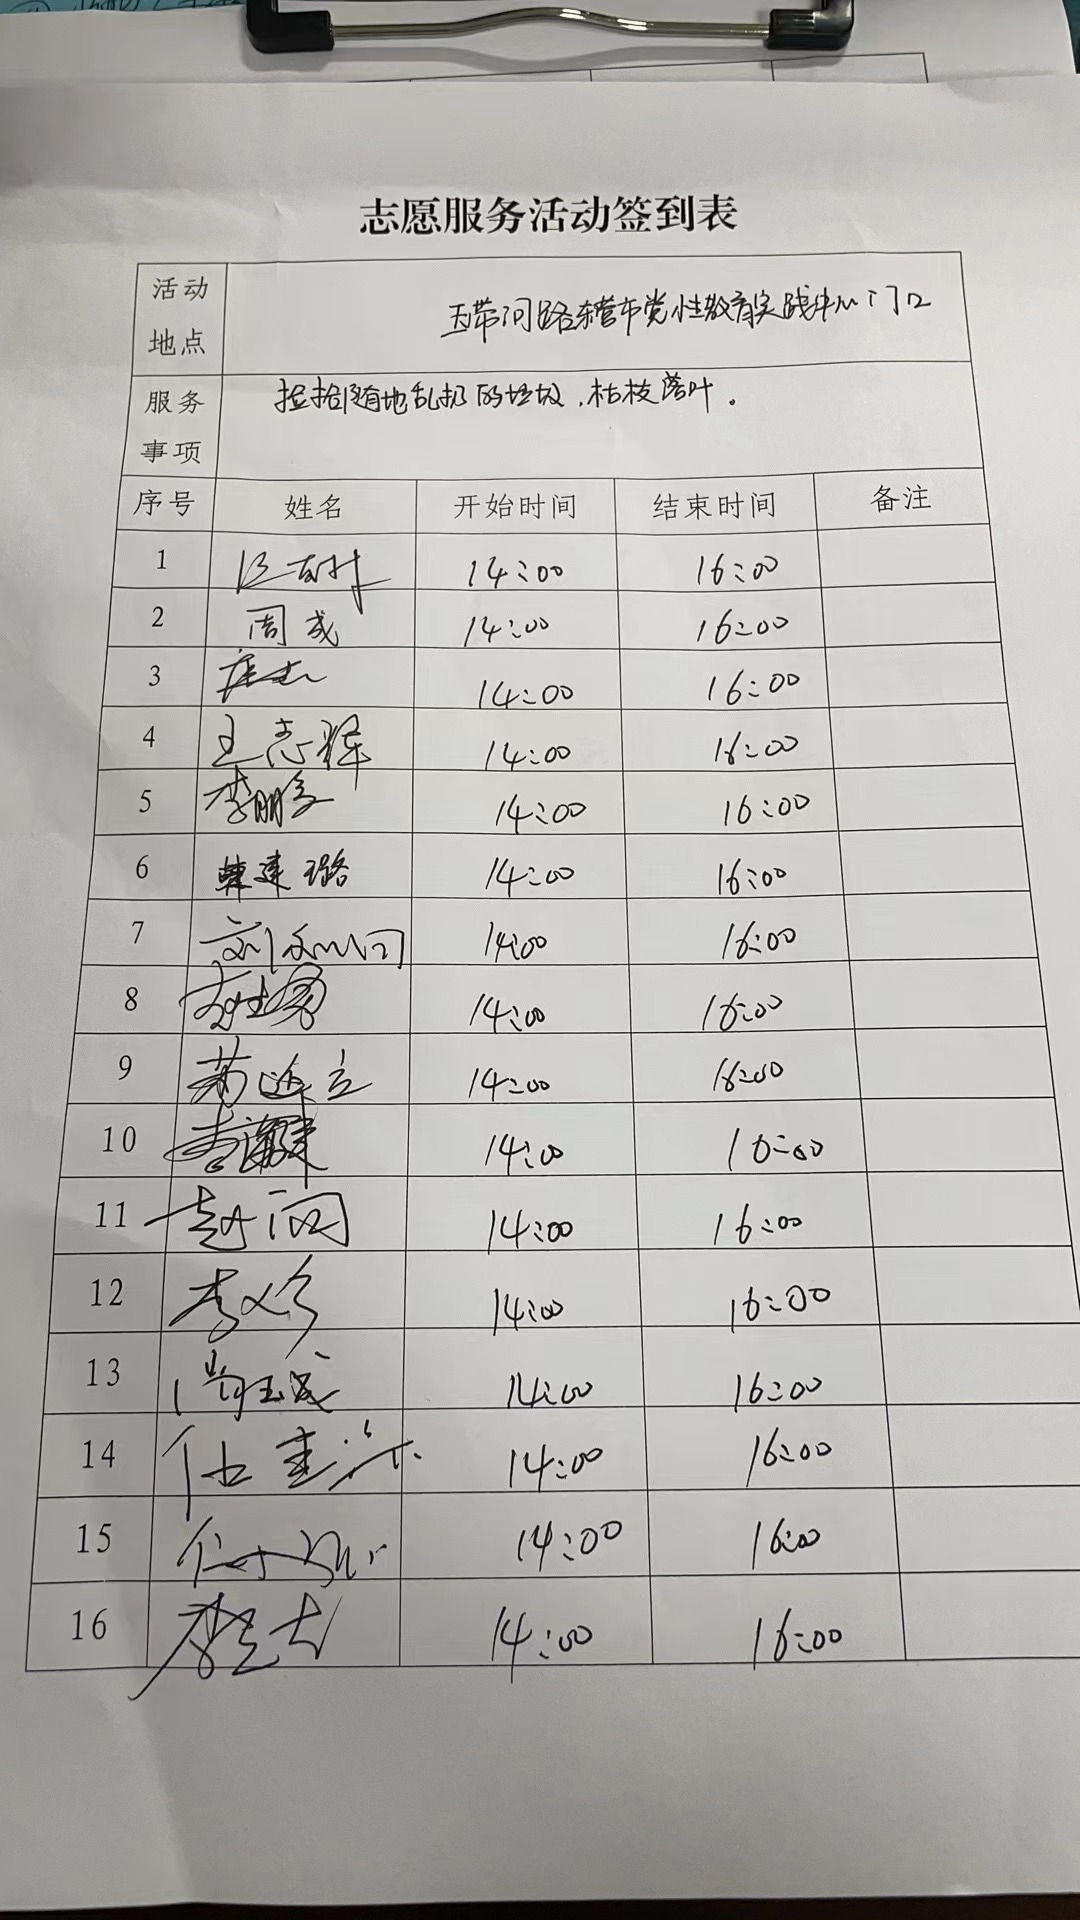 志愿服务活动签到表
活动地点 玉带河路东营市党性教育实践中心门口
服务事项 捡拾随地乱扔的垃圾、枯枝落叶。
序号 姓名 开始时间 结束时间 备注
1 14:00 16:00
2 周成 14:00 16:00
3 14:00 16:00
4 王志辉 14:00 16:00
5 李鹏 14:00 16:00
6 韩建璐 14:00 16:00
7 刘 14:00 16:00
8 14:00 16:00
9 14:00 16:00
10 14:00 16:00
11 赵 14:00 16:00
12 李 14:00 16:00
13 尚玉成 14:00 16:00
14 任 14:00 16:00
15 14:00 16:00
16 李 14:00 16:00